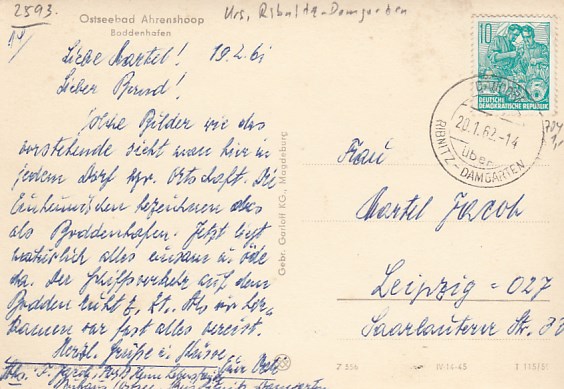 2593.
Urs. Ribnitz-Damgarten
Ostseebad Ahrenshoop
Boddenhafen
19.1.61
Liebe Martel!
Lieber Bernd!
Solche Bilder wie das
vorstehende sieht man hier in
jedem Dorf bzw. Ortschaft. Die
Einheimischen bezeichnen das
als Boddenhafen. Jetzt liegt
natürlich alles einsam u. öde
da. Der Schiffsverkehr auf dem
Bodden ruht z. Zt. Als wir
kamen war fast alles vereist.
Herzl. Grüße u. Küsse
Gebr. Garloff KG., Magdeburg
10
DEUTSCHE
DEMOKRATISCHE REPUBLIK
20.1.62-14
über
RIBNITZ-DAMGARTEN
Frau
Martel Jacob
Leipzig-027
Saarlauterer Str.
Z 556
IV-14-45